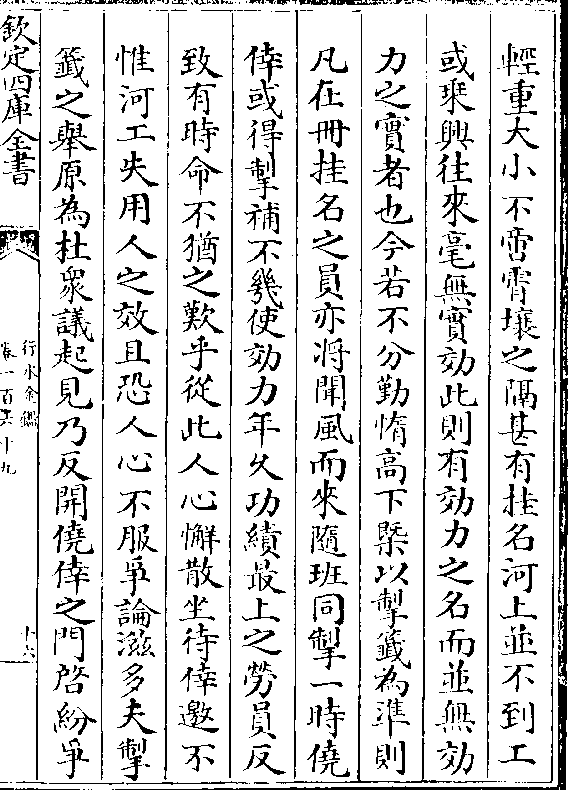 輕重大小不啻霄壤之隔甚有挂名河上並不到工
或乗興往來毫無實効此則有効力之名而並無効
力之實者也今若不分勤惰髙下槩以掣籤為準則
凡在冊挂名之員亦将聞風而來隨班同掣一時僥
倖或得掣補不幾使効力年久功績最上之勞員反
致有時命不猶之歎乎從此人心懈散坐待倖邀不
惟河工失用人之效且恐人心不服爭論滋多夫掣
籤之舉原為杜衆議起見乃反開僥倖之門啓紛爭
欽定四庫全書
行水金鑑
卷一百六十九
十六